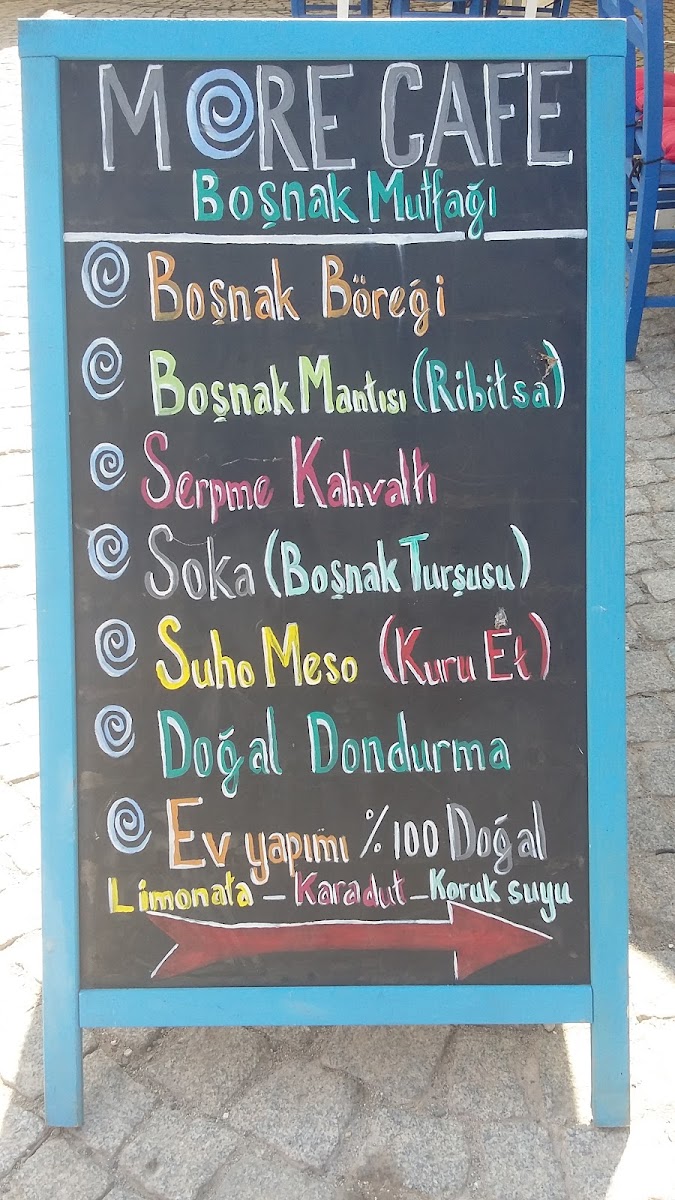 MORE CAFE
Boşnak Mutfağı
Boşnak Böreği
Boşnak Mantısı (Ribitsa)
Serpme Kahvaltı
Soka (Boşnak Turşusu)
Suho Meso (Kuru Et)
Doğal Dondurma
Ev yapımı %100 Doğal
Limonata - Karadut - Koruk suyu